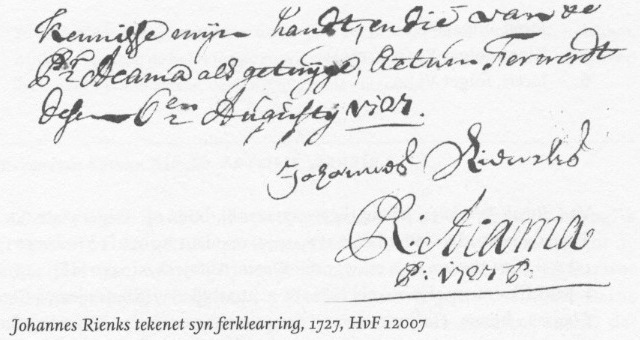 kennisse mijn handt, en die van de
Pr. Acama als getuijge, Actum Ferwerdt
desen 6en Augusty 1727.
Johannes Rienks
R. Acama
P: 1727 P:
Johannes Rienks tekenet syn ferklearring, 1727, HvF 12007